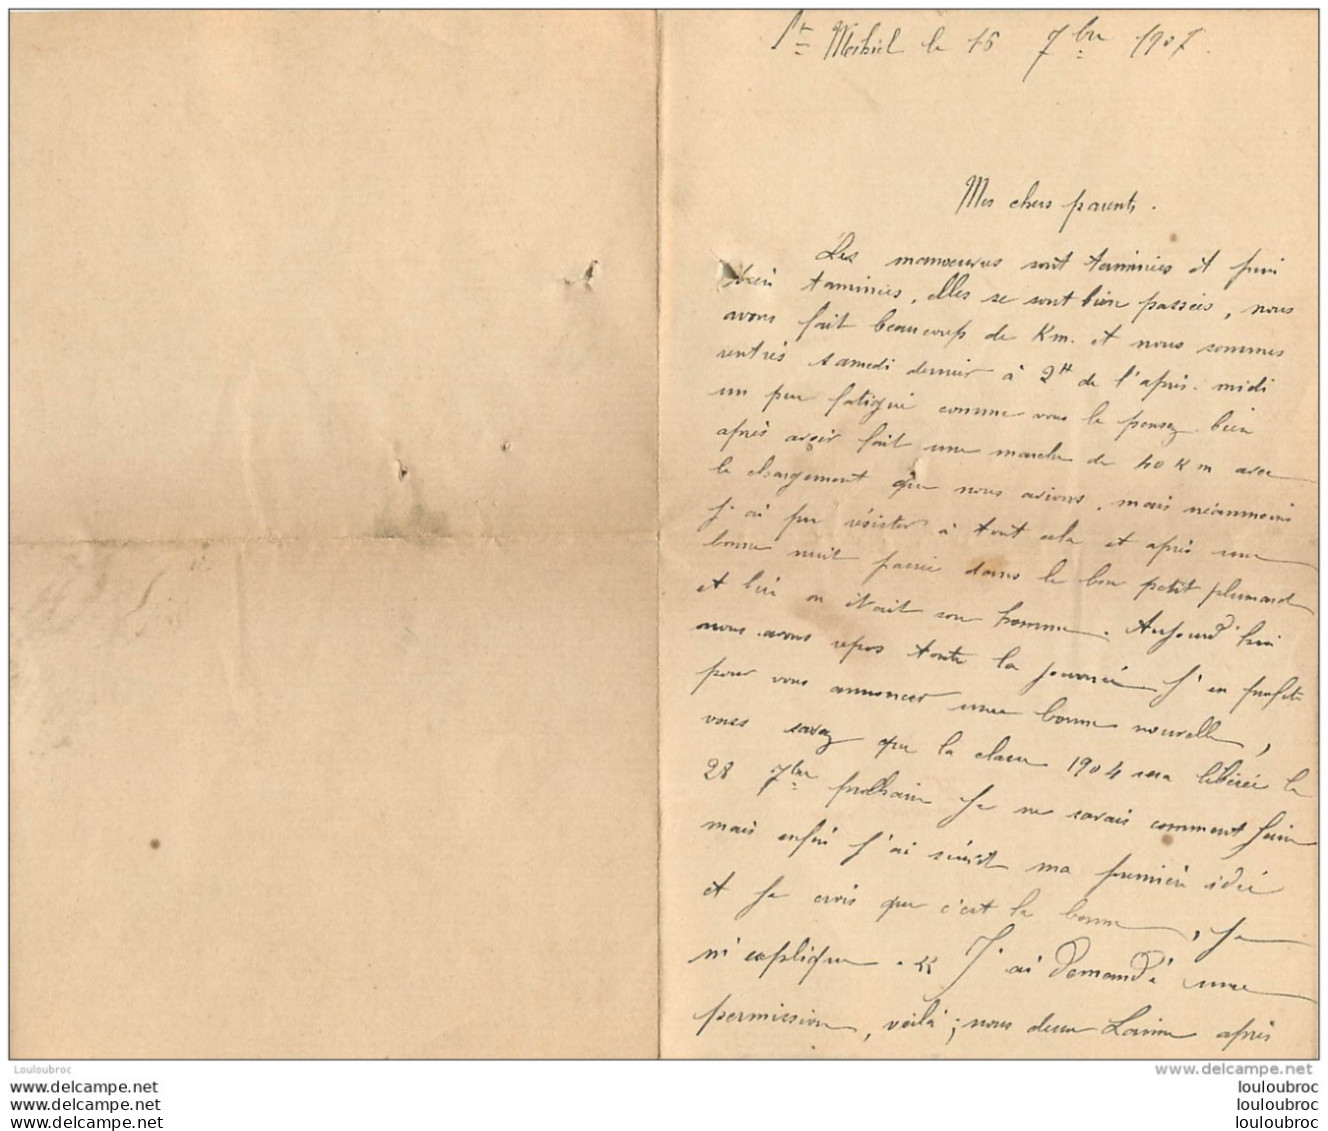 St Mihiel le 16 7bre 1907.
Mes chers parents.
Les manoeuvres sont terminées et puis
bien terminées, elles se sont bien passées, nous
avons fait beaucoup de Km. et nous sommes
rentrés samedi dernier à 2H de l'après-midi
un peu fatigué comme vous le pensez bien
après avoir fait une marche de 40 Km avec
le chargement que nous avions, mais néanmoins
j'ai pu résister à tout cela et après une
bonne nuit passée dans le bon petit plumard
et bien on était son homme. Aujourd'hui
nous avons repos toute la journée j'en profite
pour vous annoncer une bonne nouvelle,
vous savez que la classe 1904 sera libérée le
28 7bre prochain je ne savais comment faire
mais enfin j'ai suivit ma première idée
et je crois que c'est la bonne, je
m'explique. « J'ai demandé une
permission, voilà; nous deux après
Louloubroc
www.delcampe.net
www.delcampe.net
www.delcampe.net
www.delcampe.net
louloubroc
louloubroc
louloubroc